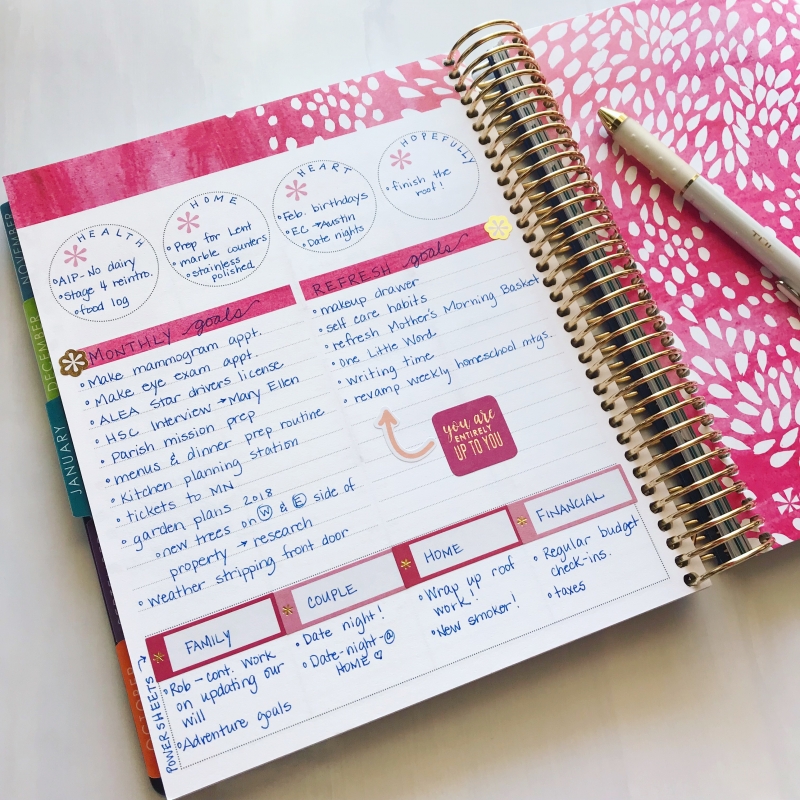 HEALTH
◦AIP-No dairy
◦Stage 4 reintro.
◦food log
HOME
◦Prep for Lent
◦marble counters
◦stainless
polished
HEART
◦Feb. birthdays
◦EC →Austin
◦Date nights
HOPEFULLY
◦finish the
roof!
MONTHLY goals
◦Make mammogram appt.
◦Make eye exam appt.
◦ALEA Star drivers license
◦HSC Interview →Mary Ellen
◦Parish mission prep
◦menus & dinner prep routine
◦Kitchen planning station
◦tickets to MN
◦garden plans 2018
◦new trees on W & E side of
property → research
◦Weather stripping front door
REFRESH goals
◦makeup drawer
◦self care habits
◦refresh Mother's Morning Basket
◦One Little Word
◦writing time
◦revamp weekly homeschool mtgs.
you are
ENTIRELY
UP TO YOU
POWERSHEETS →
FAMILY
◦Rob-cont. work
on updating our
will
◦Adventure goals
COUPLE
◦Date night!
◦Date-night-@
HOME ♡
HOME
◦Wrap up roof
work!!
◦New smoker!
FINANCIAL
◦Regular budget
check-ins.
◦taxes
NOVEMBER
DECEMBER
JANUARY
OCTOBER